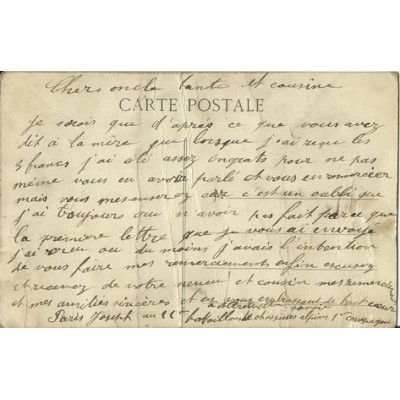 Chers oncle tante et cousine
CARTE POSTALE
Je crois que d'après ce que vous avez
dit à la mère que lorsque j'ai reçu les
5 francs j'ai été assez ingrats pour ne pas
même vous en avoir parlé et vous en remercier
mais vous mexcuserez car c'est un oubli que
j'ai toujours cru n'avoir pas fait parce que
la première lettre que je vous ai envoyé
j'ai cru ou du moins j'avais l'intention
de vous faire mes remerciements enfin excusez
et recevez de votre neveu et cousin mes remerciments
et mes amitiés sincères et en vous embrassant de tout cœur
à Albertville Savoie
Paris Joseph au 22e bataillon de chasseurs alpins 1re compagnie